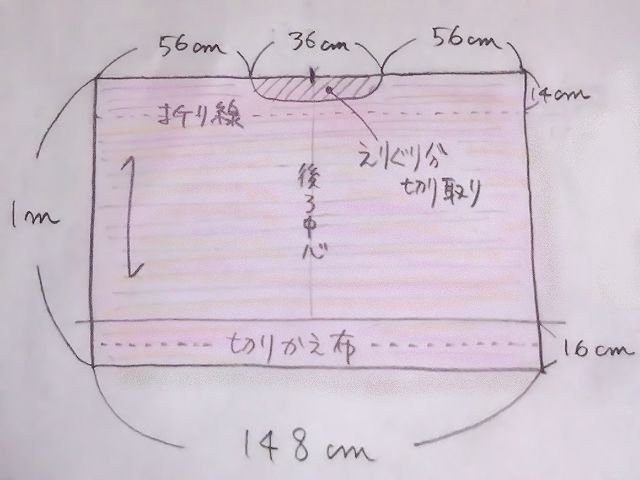 56cm
36cm
56cm
14cm
折り線
えりぐり分
切り取り
後ろ中心
1m
切りかえ布
16cm
148cm